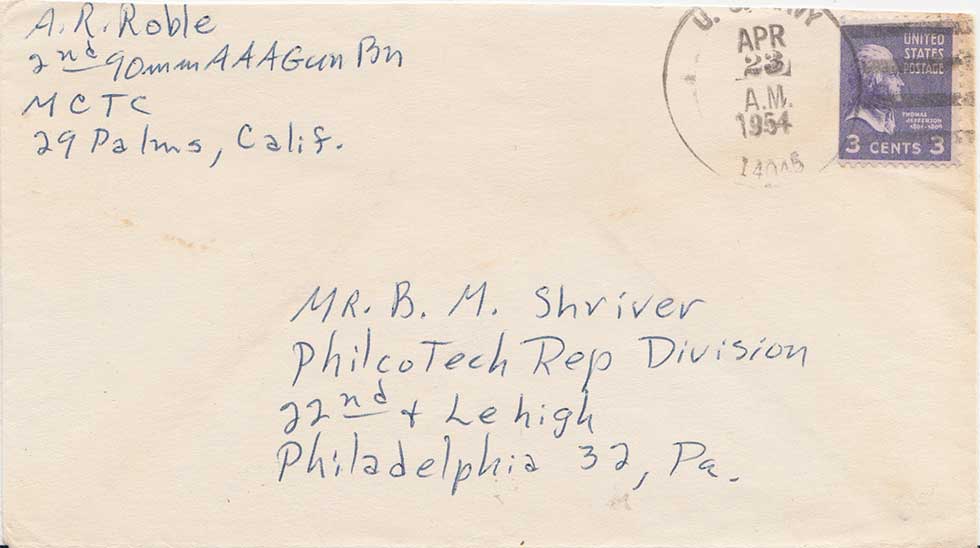 A. R. Roble
2nd 90mm AAA Gun Bn
MCTC
29 Palms, Calif.
U. S. NAVY
APR
23
A.M.
1954
14045
UNITED
STATES
POSTAGE
THOMAS
JEFFERSON
1801-1809
3 CENTS 3
MR. B. M. Shriver
Philco Tech Rep Division
22nd + Lehigh
Philadelphia 32, Pa.